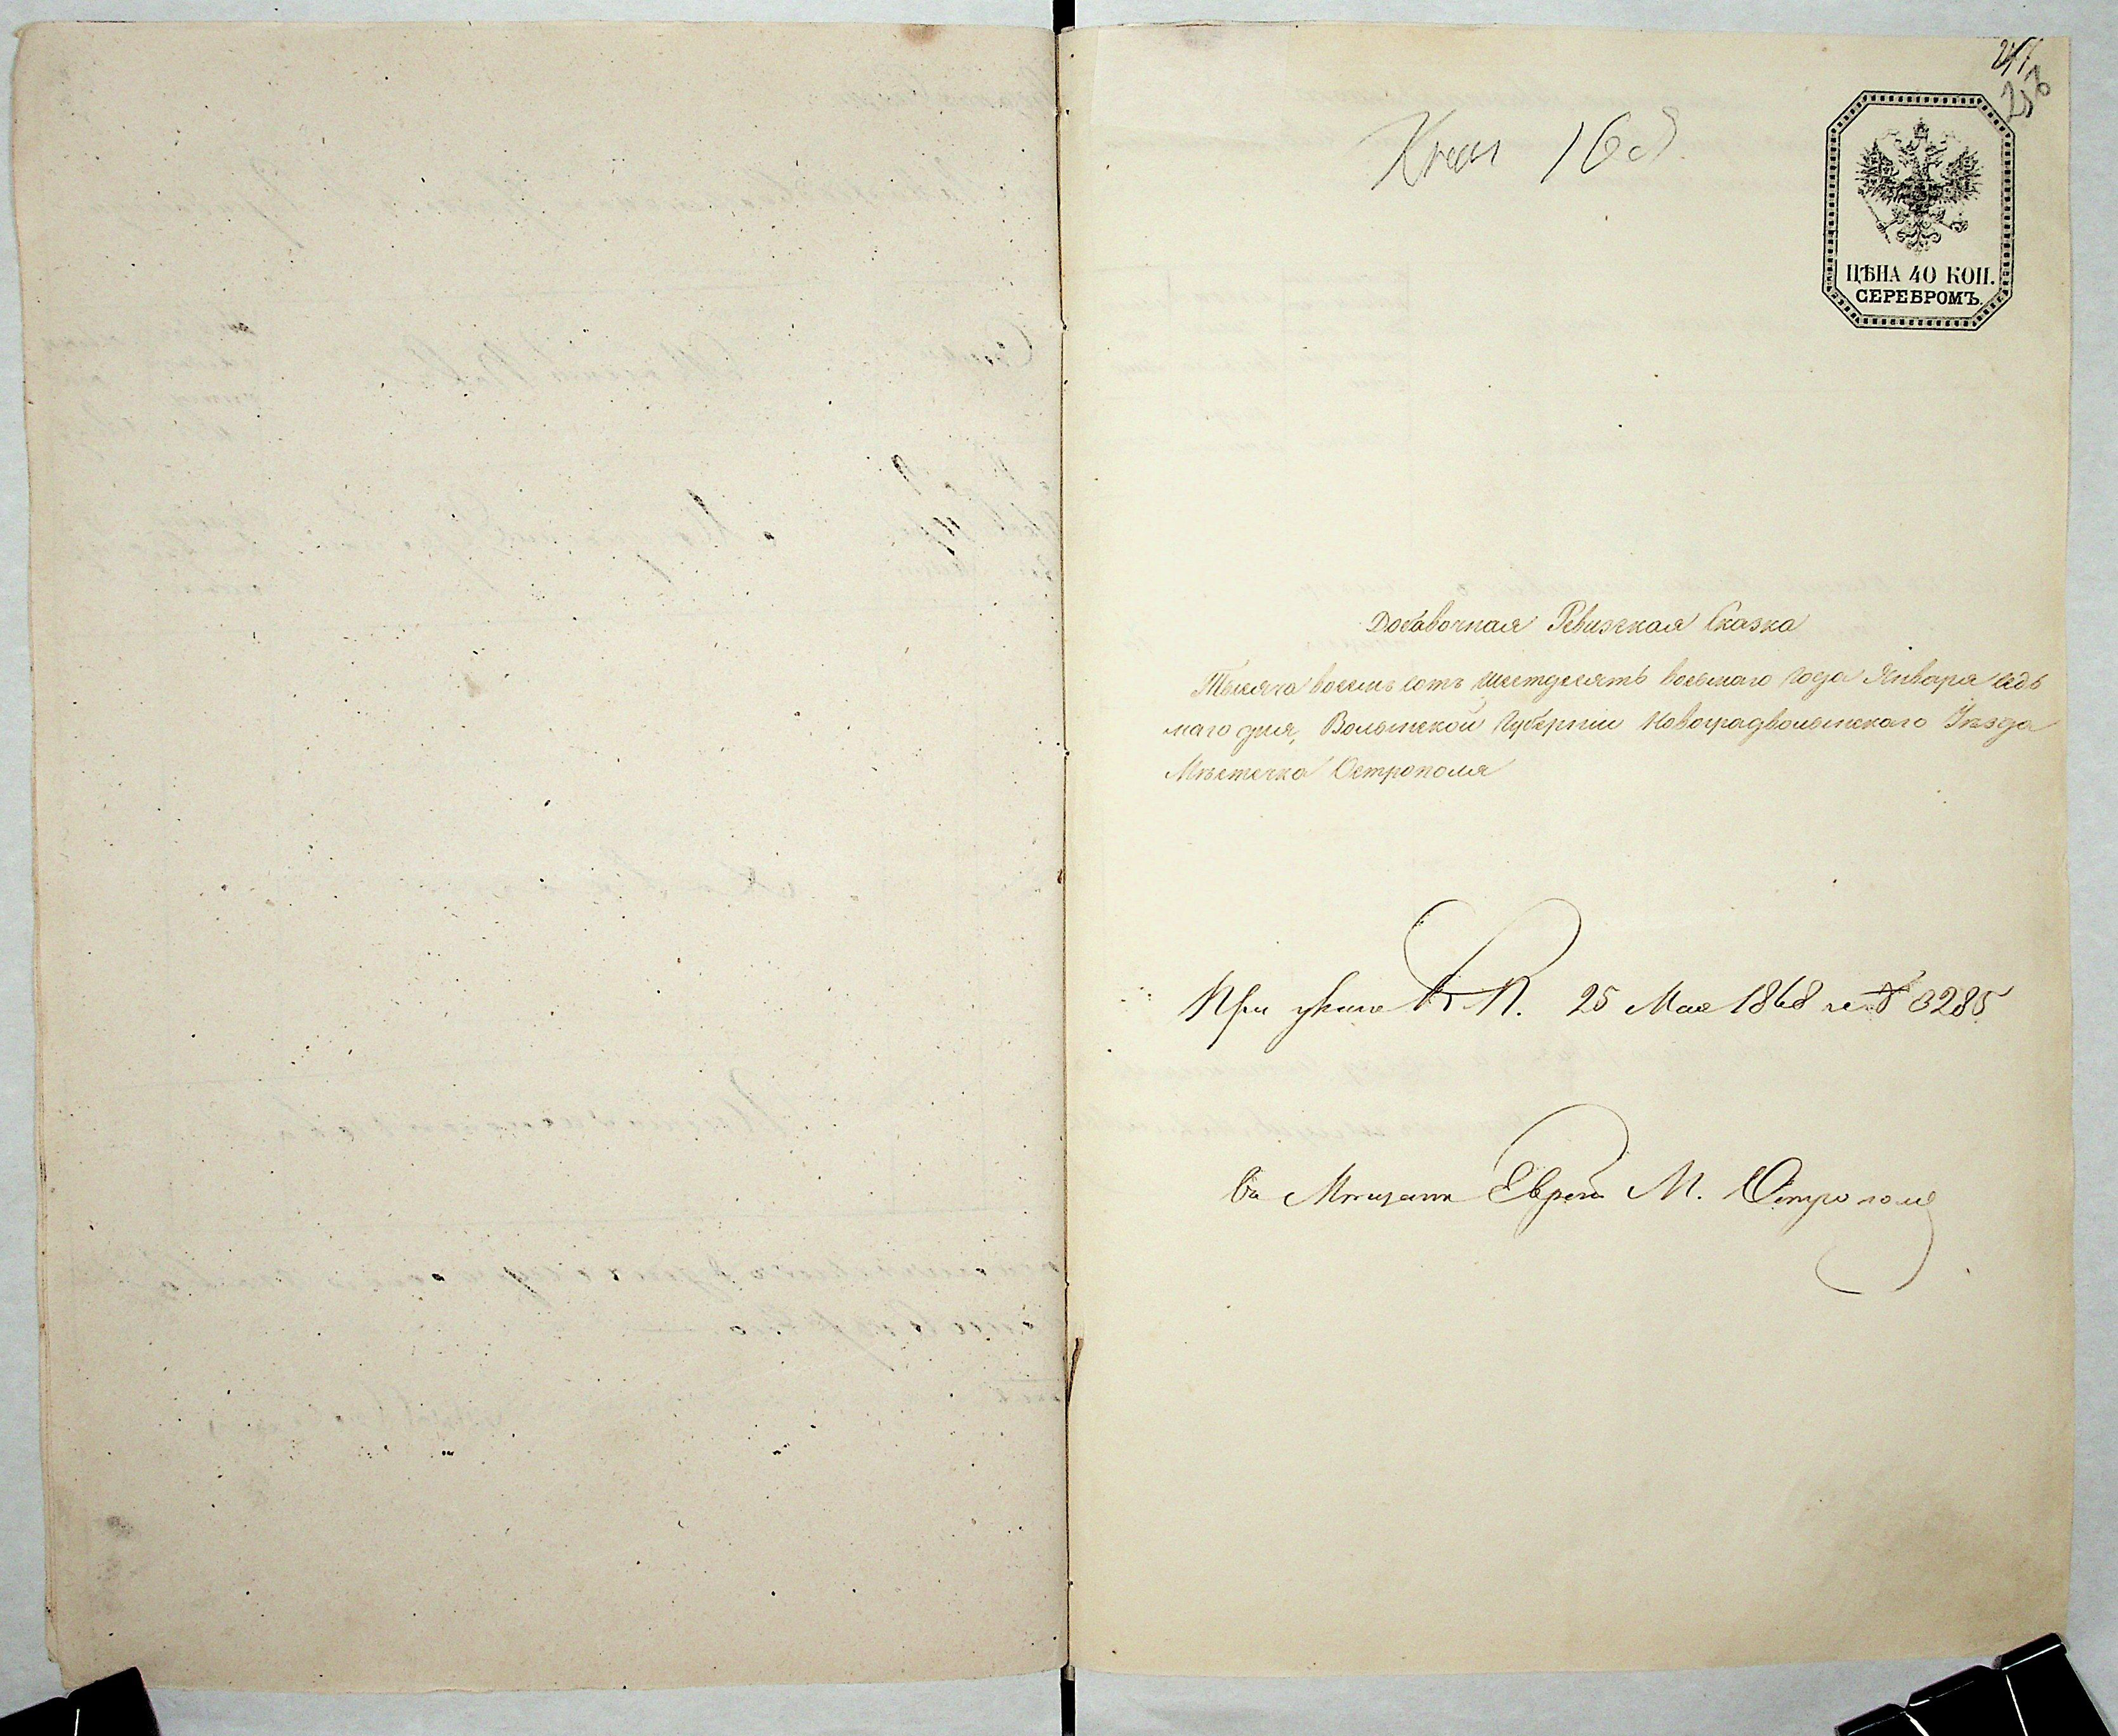 247
253
168
ЦѢНА 40 КОП.
СЕРЕБРОМЪ.
Добавочная Ревизская Сказка
Тысяча восемь сотъ шестдесятъ восьмаго года Января седь
маго дня, Волынской Губерніи Новоградволынскаго Уѣзда
Мѣстечка Острополя
При указе К. П. 25 Мая 1868 № 3285
въ Мѣщане Евреи М. Острополя